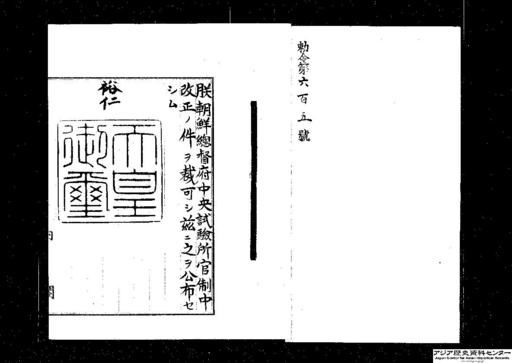 勅令第六百五號
朕朝鮮總督府中央試驗所官制中
改正ノ件ヲ裁可シ茲ニ之ヲ公布セ
シム
裕仁
天皇
御璽
内
閣
アジア歴史資料センター
Japan Center for Asian Historical Records